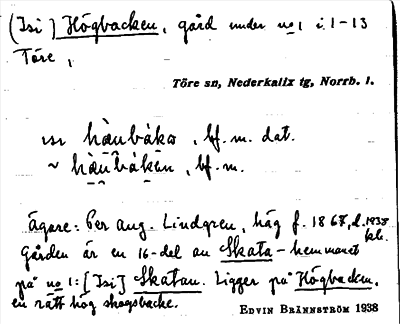 (Isi) Högbacken, gård under no 1 i. 1-13
Töre,
Töre sn, Nederkalix tg, Norrb. l.
ısı hàu̯bàka, bf. m. dat.
~ hàu̯bàkän, bf. m.
Ägare: Per Aug. Lindgren, häg f. 1867, d. 1937
Gården är en 16-del av Skata-hemmanet
på no 1: [Isi] Skatan. Ligger på Högbacken,
en rätt hög skogsbacke.
EDVIN BRÄNNSTRÖM 1938